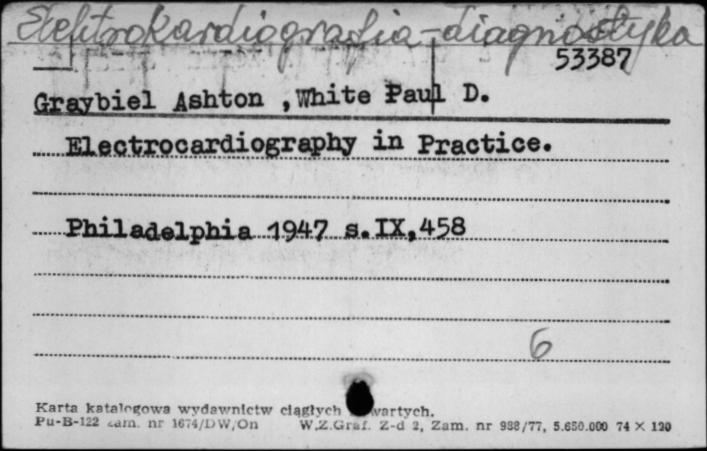 Elektrokardiografia-diagnostyka
53387
Graybiel Ashton ,White Paul D.
Electrocardiography in Practice.
Philadelphia 1947 s.IX,458
6
Karta katalogowa wydawnictw ciągłych wartych.
Pu-B-122 zam. nr 1674/DW/On W.Z.Graf. Z-d 2, Zam. nr 988/77, 5.650.000 74 × 120